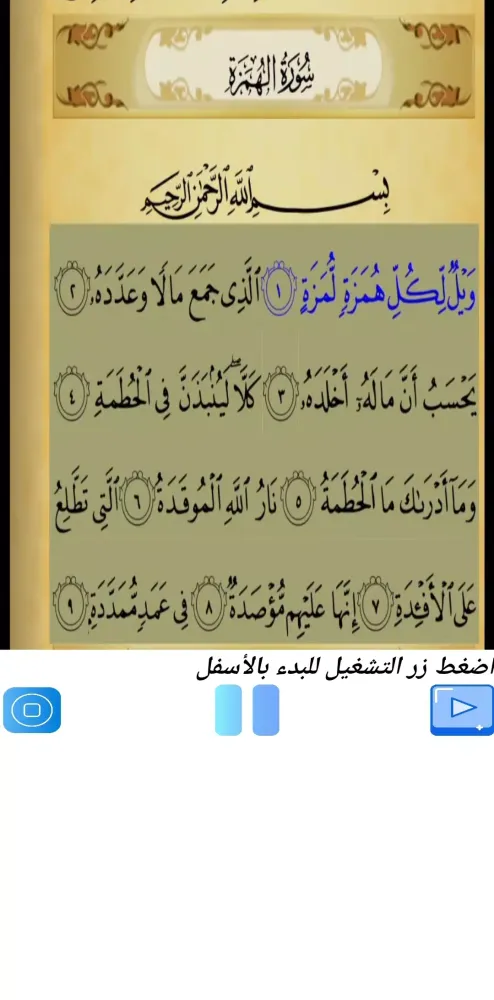 سُورَةُ الهُمَزَةِ
بِسْمِ ٱللَّهِ ٱلرَّحْمَٰنِ ٱلرَّحِيمِ
وَيْلٌ لِّكُلِّ هُمَزَةٍ لُّمَزَةٍ ١ ٱلَّذِى جَمَعَ مَالًا وَعَدَّدَهُۥ ٢
يَحْسَبُ أَنَّ مَالَهُۥٓ أَخْلَدَهُۥ ٣ كَلَّاۖ لَيُنۢبَذَنَّ فِى ٱلْحُطَمَةِ ٤
وَمَآ أَدْرَىٰكَ مَا ٱلْحُطَمَةُ ٥ نَارُ ٱللَّهِ ٱلْمُوقَدَةُ ٦ ٱلَّتِى تَطَّلِعُ
عَلَى ٱلْأَفْـِٔدَةِ ٧ إِنَّهَا عَلَيْهِم مُّؤْصَدَةٌ ٨ فِى عَمَدٍ مُّمَدَّدَةٍۭ ٩
اضغط زر التشغيل للبدء بالأسفل